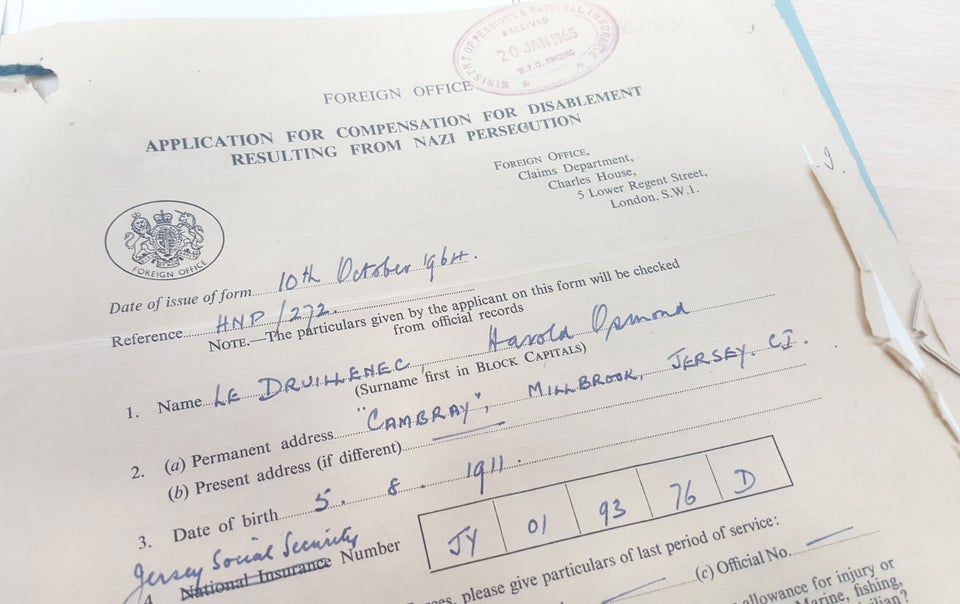 MINISTRY OF PENSIONS & NATIONAL INSURANCE
RECEIVED
20 JAN 1965
FOREIGN OFFICE
APPLICATION FOR COMPENSATION FOR DISABLEMENT
RESULTING FROM NAZI PERSECUTION
FOREIGN OFFICE,
Claims Department,
Charles House,
5 Lower Regent Street,
London, S.W.1.
FOREIGN OFFICE
Date of issue of form 10th October 1964.
Reference HNP/272.
NOTE.—The particulars given by the applicant on this form will be checked
from official records
1. Name LE DRUILLENEC, Harold Osmond
(Surname first in BLOCK CAPITALS)
2. (a) Permanent address "CAMBRAY", MILLBROOK, JERSEY. C.I.
(b) Present address (if different)
3. Date of birth 5. 8. 1911.
Jersey Social Security
4. National Insurance Number JY 01 93 76 D
please give particulars of last period of service:
(c) Official No.
allowance for injury or
Marine, fishing,